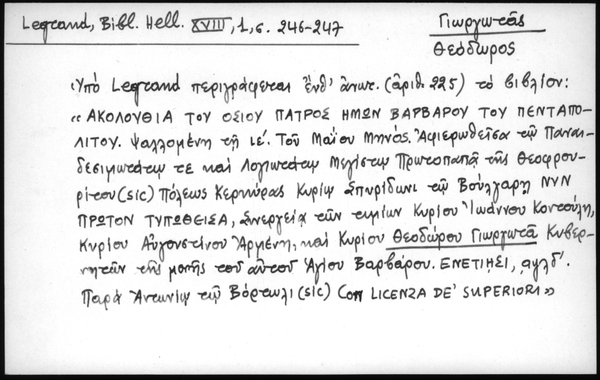 Legrand, Bibl. Hell. XVIII, 1, σ. 246-247
Γιωργωτᾶς
Θεόδωρος
Ὑπὸ Legrand περιγράφεται ἔνθ' ἀνωτ. (ἀριθ. 225) τὸ βιβλίον:
«ΑΚΟΛΟΥΘΙΑ ΤΟΥ ΟΣΙΟΥ ΠΑΤΡΟΣ ΗΜΩΝ ΒΑΡΒΑΡΟΥ ΤΟΥ ΠΕΝΤΑΠΟ-
ΛΙΤΟΥ. Ψαλλομένη τῇ ιε΄. Τοῦ Μαΐου Μηνός. Ἀφιερωθεῖσα τῷ Παναι-
δεσιμωτάτῳ τε καὶ Λογιωτάτῳ Μεγίστῳ Πρωτοπαπᾷ τῆς Θεοφρου-
ρίτου (sic) Πόλεως Κερκύρας Κυρίῳ Σπυρίδωνι τῷ Βούλγαρῃ ΝΥΝ
ΠΡΩΤΟΝ ΤΥΠΩΘΕΙΣΑ, Συνεργείᾳ τῶν τιμίων Κυρίου Ἰωάννου Κοντούλη,
Κυρίου Αὐγουστίνου Ἀρμένη, καὶ Κυρίου Θεοδώρου Γιωργωτᾶ Κυβερ-
νητῶν τῆς μονῆς τοῦ αὐτοῦ Ἁγίου Βαρβάρου. ΕΝΕΤΙΗΣΙ, αψλδ΄.
Παρὰ Ἀντωνίῳ τῷ Βόρτωλι (sic) CON LICENZA DE' SUPERIORI»